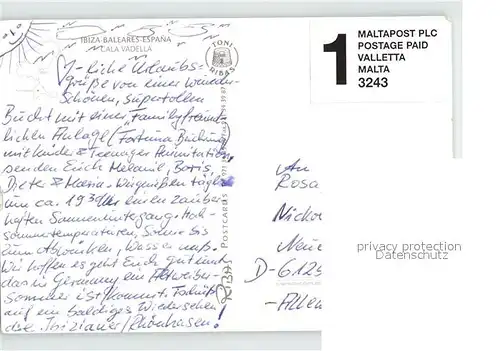 IBIZA-BALEARES-ESPAÑA
CALA VADELLA
TONI RIBAS
1
MALTAPOST PLC
POSTAGE PAID
VALLETTA
MALTA
3243
♡-liche Urlaubs-
grüße von einer wunder-
schönen, supertollen
Bucht mit einer "familyfreund-
lichen Anlage (Fortuna Buchung
mit Kinder & Teenager Animitation)
senden Euch Melanie, Boris,
Dieter & Maria. Wir genießen täglich
um ca. 19 30 Uhr einen zauber-
haften Sonnenuntergang. Hoch-
sommertemperaturen, Sonne bis
zum Abwinken, Wasser
Wir hoffen es geht Euch gut und
das in Germany ein Altweiber-
sommer ist kommt.
auf ein baldiges Wiedersehen
die Ibizianer/Rhönhasen!
POSTCARDS
RIBAS
An
Rosa
D-6129
privacy protection